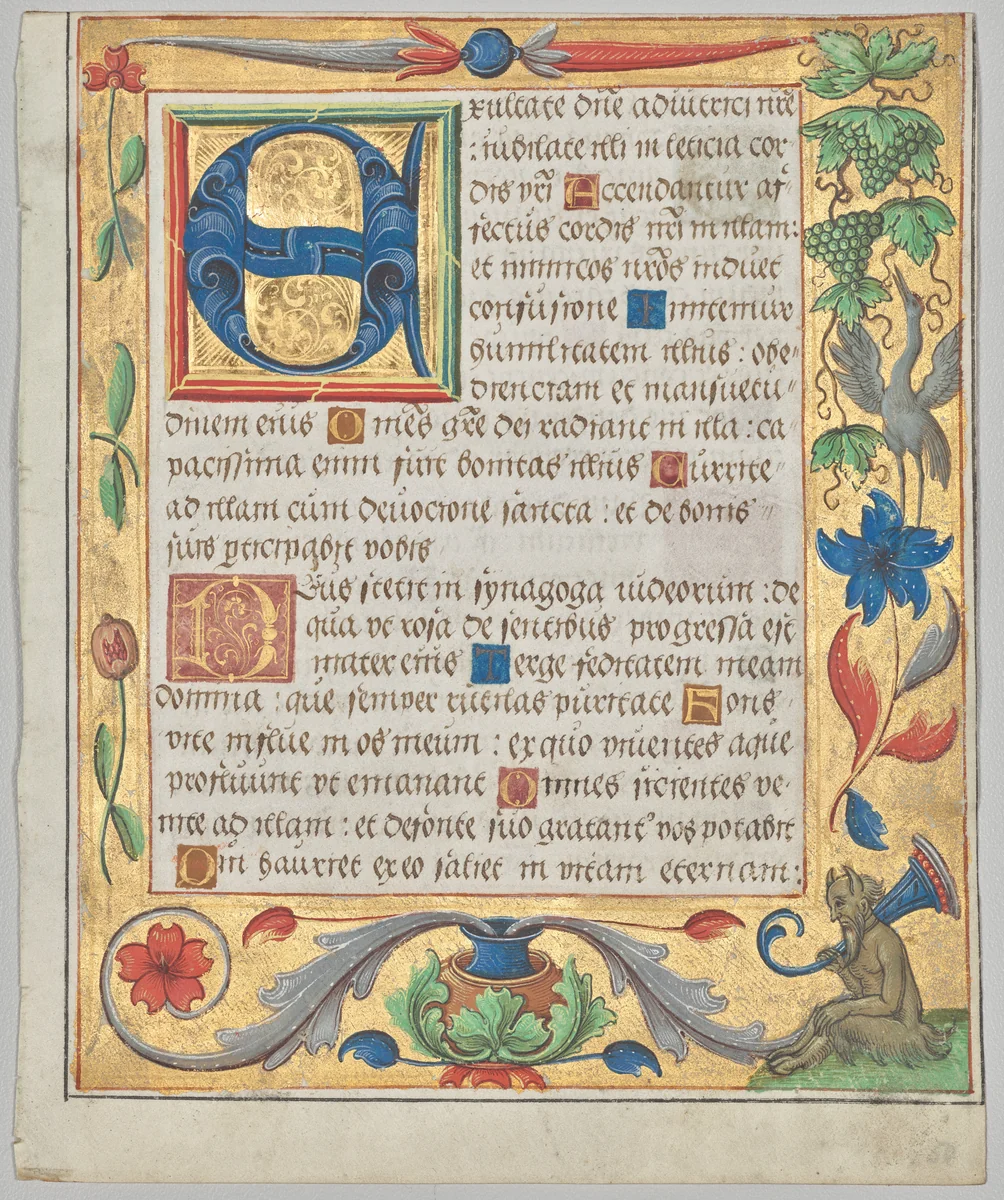 Exultate dñe adiutrici nr̃e
: iubilate illi in leticia cor-
dis vr̃i Accendantur af-
fectus cordis nr̃i in illam:
et inimicos nr̃os induet
confusione Imitemur
humilitatem illius : obe-
dienciam et mansuetu-
dinem eius Omẽs gr̃e dei radiant in illa : ca
pacissima enim fuit bonitas illius Currite
ad illam cum deuocione sancta : et de bonis
suis vobis
Deus stetit in synagoga iudeorum : de
qua vt rosa de sentibus progressa est
mater eius Terge feditatem meam
domina : que semper rutilas puritate Fons
vite influe in os meum : ex quo viuentes aque
profluunt vt emanant Omnes sicientes ve-
nite ad illam : et de fonte suo gratant' vos potabit
Qui hauriet ex eo saliet in vitam eternam: